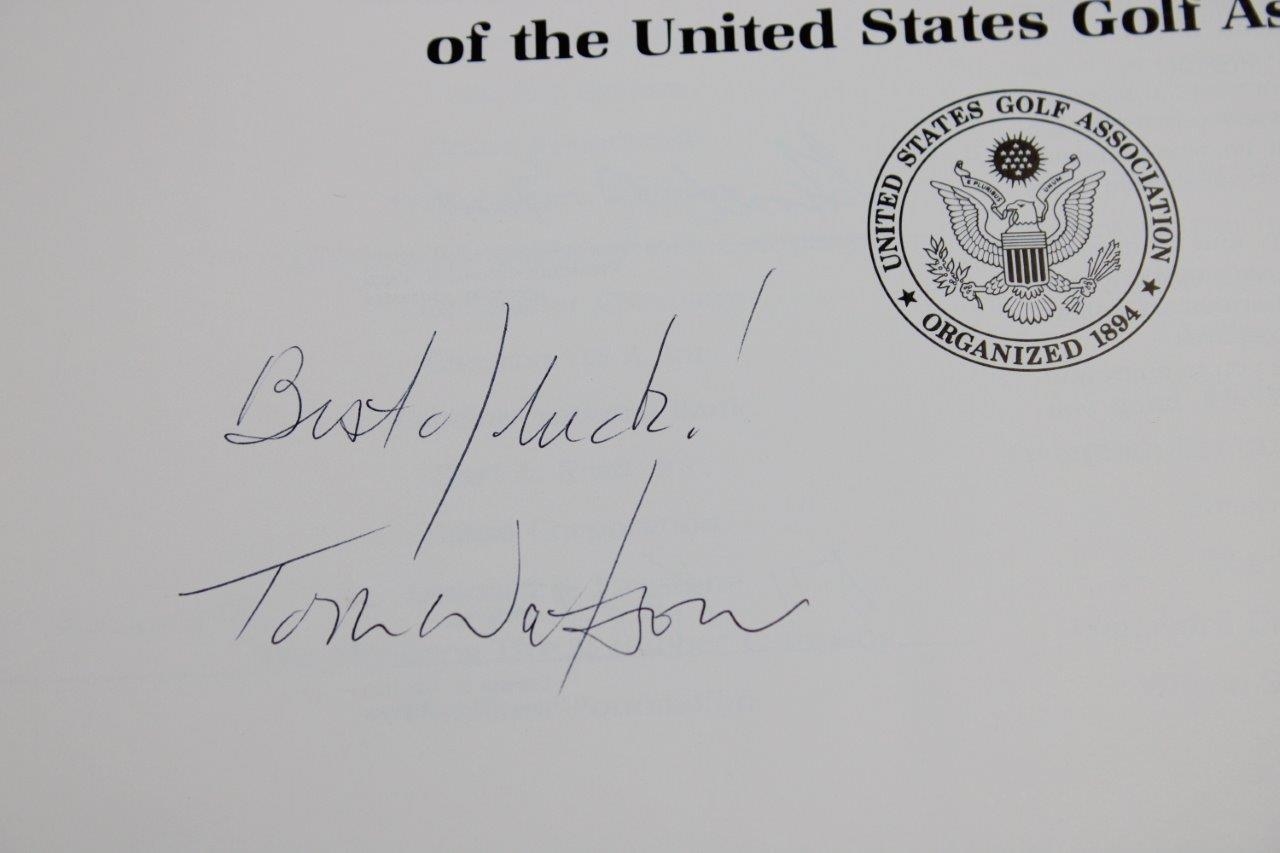 of the United States Golf As
UNITED STATES GOLF ASSOCIATION
E PLURIBUS UNUM
ORGANIZED 1894
Best of luck!
Tom Watson